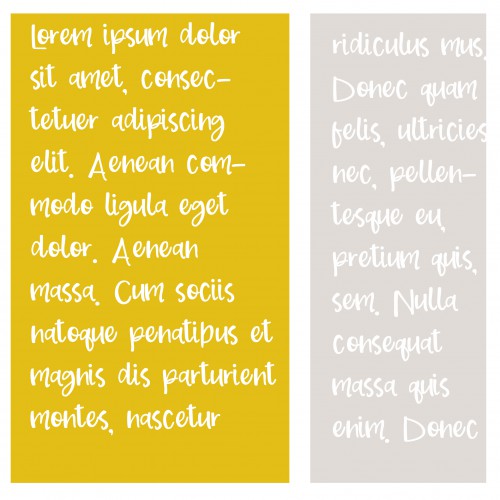 Lorem ipsum dolor
sit amet, consec-
tetuer adipiscing
elit. Aenean com-
modo ligula eget
dolor. Aenean
massa. Cum sociis
natoque penatibus et
magnis dis parturient
montes, nascetur
ridiculus mus.
Donec quam
felis, ultricies
nec, pellen-
tesque eu,
pretium quis,
sem. Nulla
consequat
massa quis
enim. Donec